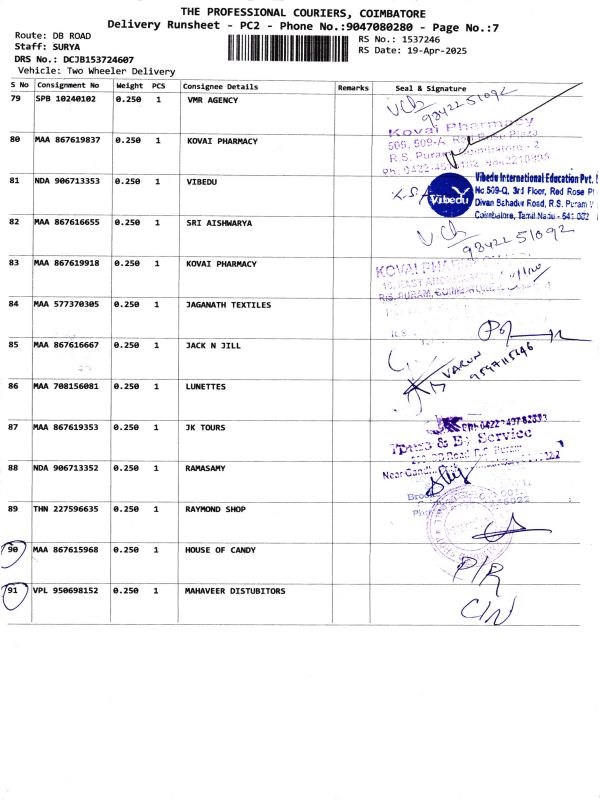 THE PROFESSIONAL COURIERS, COIMBATORE
Delivery Runsheet - PC2 - Phone No.:9047080280 - Page No.:7
Route: DB ROAD
RS No.: 1537246
Staff: SURYA
RS Date: 19-Apr-2025
DRS No.: DCJB153724607
Vehicle: Two Wheeler Delivery
S No Consignment No Weight PCS Consignee Details Remarks Seal & Signature
79 SPB 10240102 0.250 1 VMR AGENCY
9842251092
80 MAA 867619837 0.250 1 KOVAI PHARMACY
Kovai Pharmacy
81 NDA 906713353 0.250 1 VIBEDU
Vibedu
Vibedu International Education Pvt.
No.509-Q, 3rd Floor, Red Rose
Divan Bahadur Road, R.S. Puram
Coimbatore, Tamil Nadu - 641 002
82 MAA 867616655 0.250 1 SRI AISHWARYA
9842251092
83 MAA 867619918 0.250 1 KOVAI PHARMACY
KOVAI
84 MAA 577370305 0.250 1 JAGANATH TEXTILES
85 MAA 867616667 0.250 1 JACK N JILL
VARUN
86 MAA 708156081 0.250 1 LUNETTES
87 MAA 867619353 0.250 1 JK TOURS
Service
88 NDA 906713352 0.250 1 RAMASAMY
89 THN 227596635 0.250 1 RAYMOND SHOP
90 MAA 867615968 0.250 1 HOUSE OF CANDY
P/R
91 VPL 950698152 0.250 1 MAHAVEER DISTUBITORS
C/N